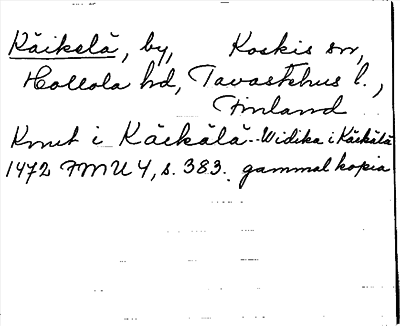 Käikelä, by, Koskis sn,
Hollola hd, Tavastehus l.,
Finland
Knut i Käikälä - - Widika i Käikälä
1472 FMU 4, s. 383. gammal kopia